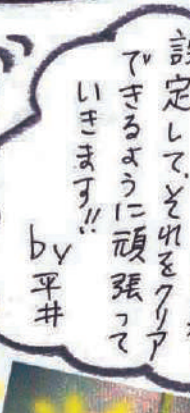 設定して、それをクリア
できるように頑張って
いきます!!
by 平井